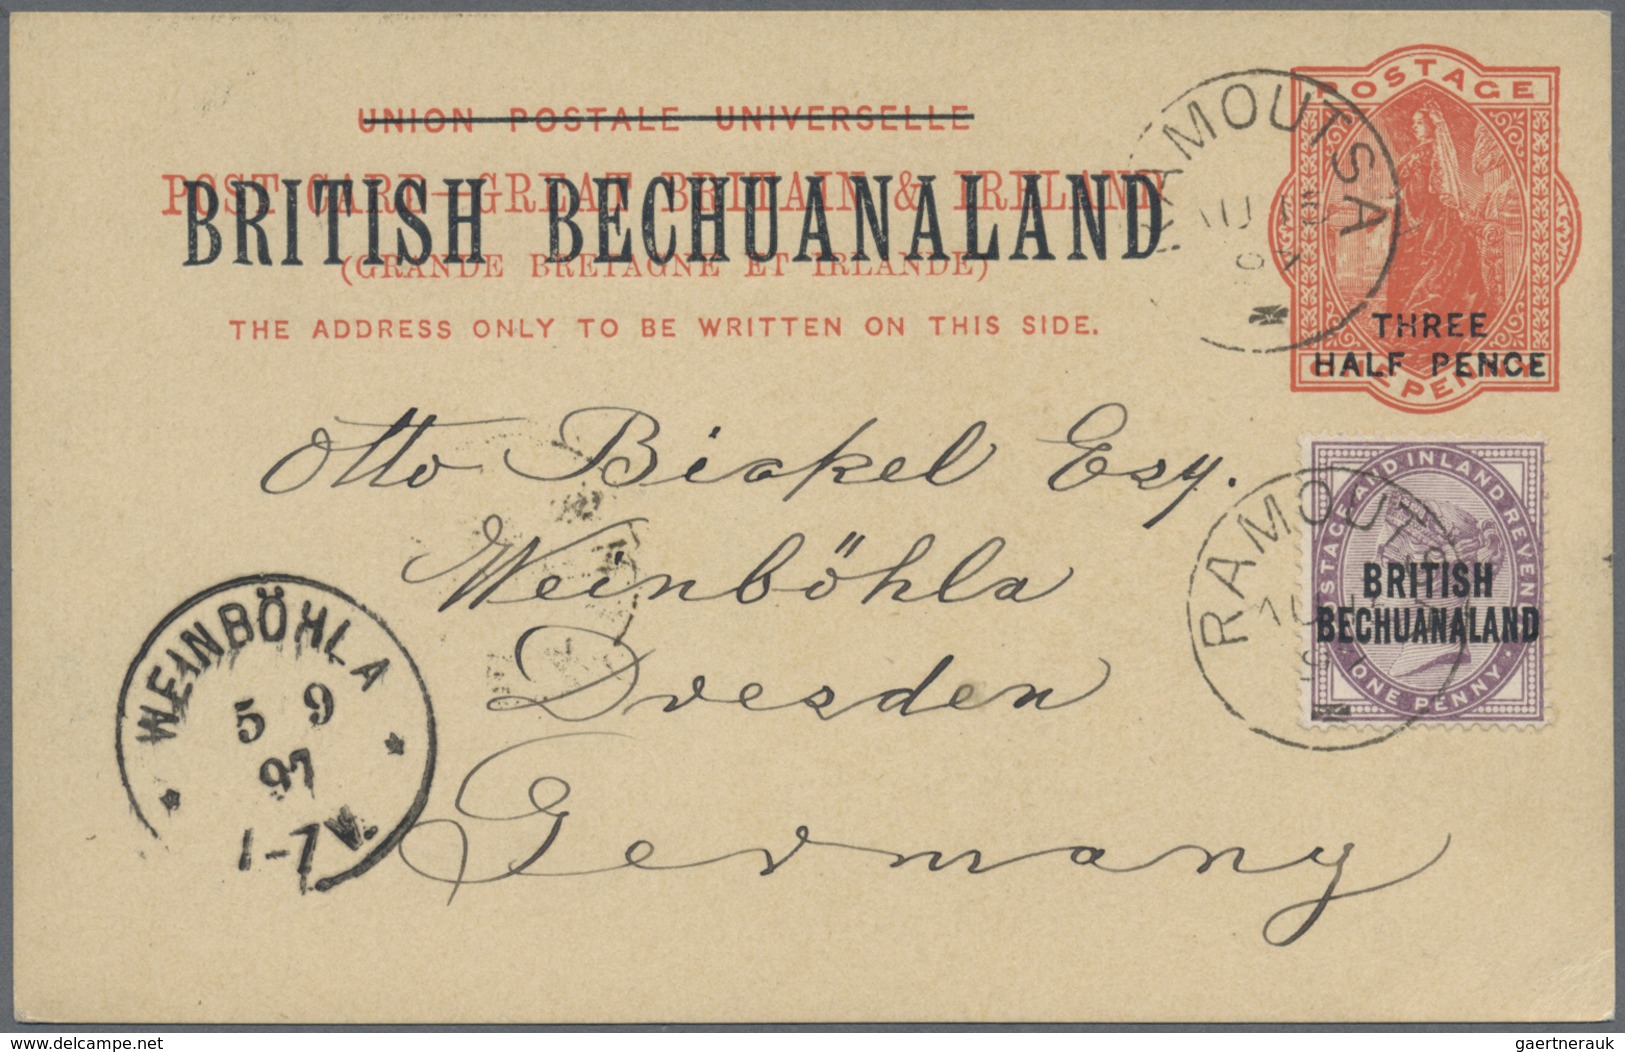 UNION POSTALE UNIVERSELLE
POST CARD—GREAT BRITAIN & IRELAND
BRITISH BECHUANALAND
(GRANDE BRETAGNE ET IRLANDE)
THE ADDRESS ONLY TO BE WRITTEN ON THIS SIDE.
RAMOUTSA
POSTAGE
THREE
HALF PENCE
ONE PENNY
Otto Bickel Esq.
Weinböhla
Dresden
Germany
RAMOUTSA
POSTAGE AND INLAND REVENUE
BRITISH
BECHUANALAND
ONE PENNY
WEINBÖHLA
5 9
97
1-7 V.
delcampe.net
gaertnerauk